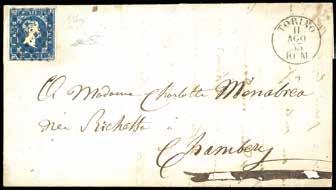 TORINO
11
AGO
10 M.
A Madame Charlotte Menabrea
née Richetta
à
Chambery